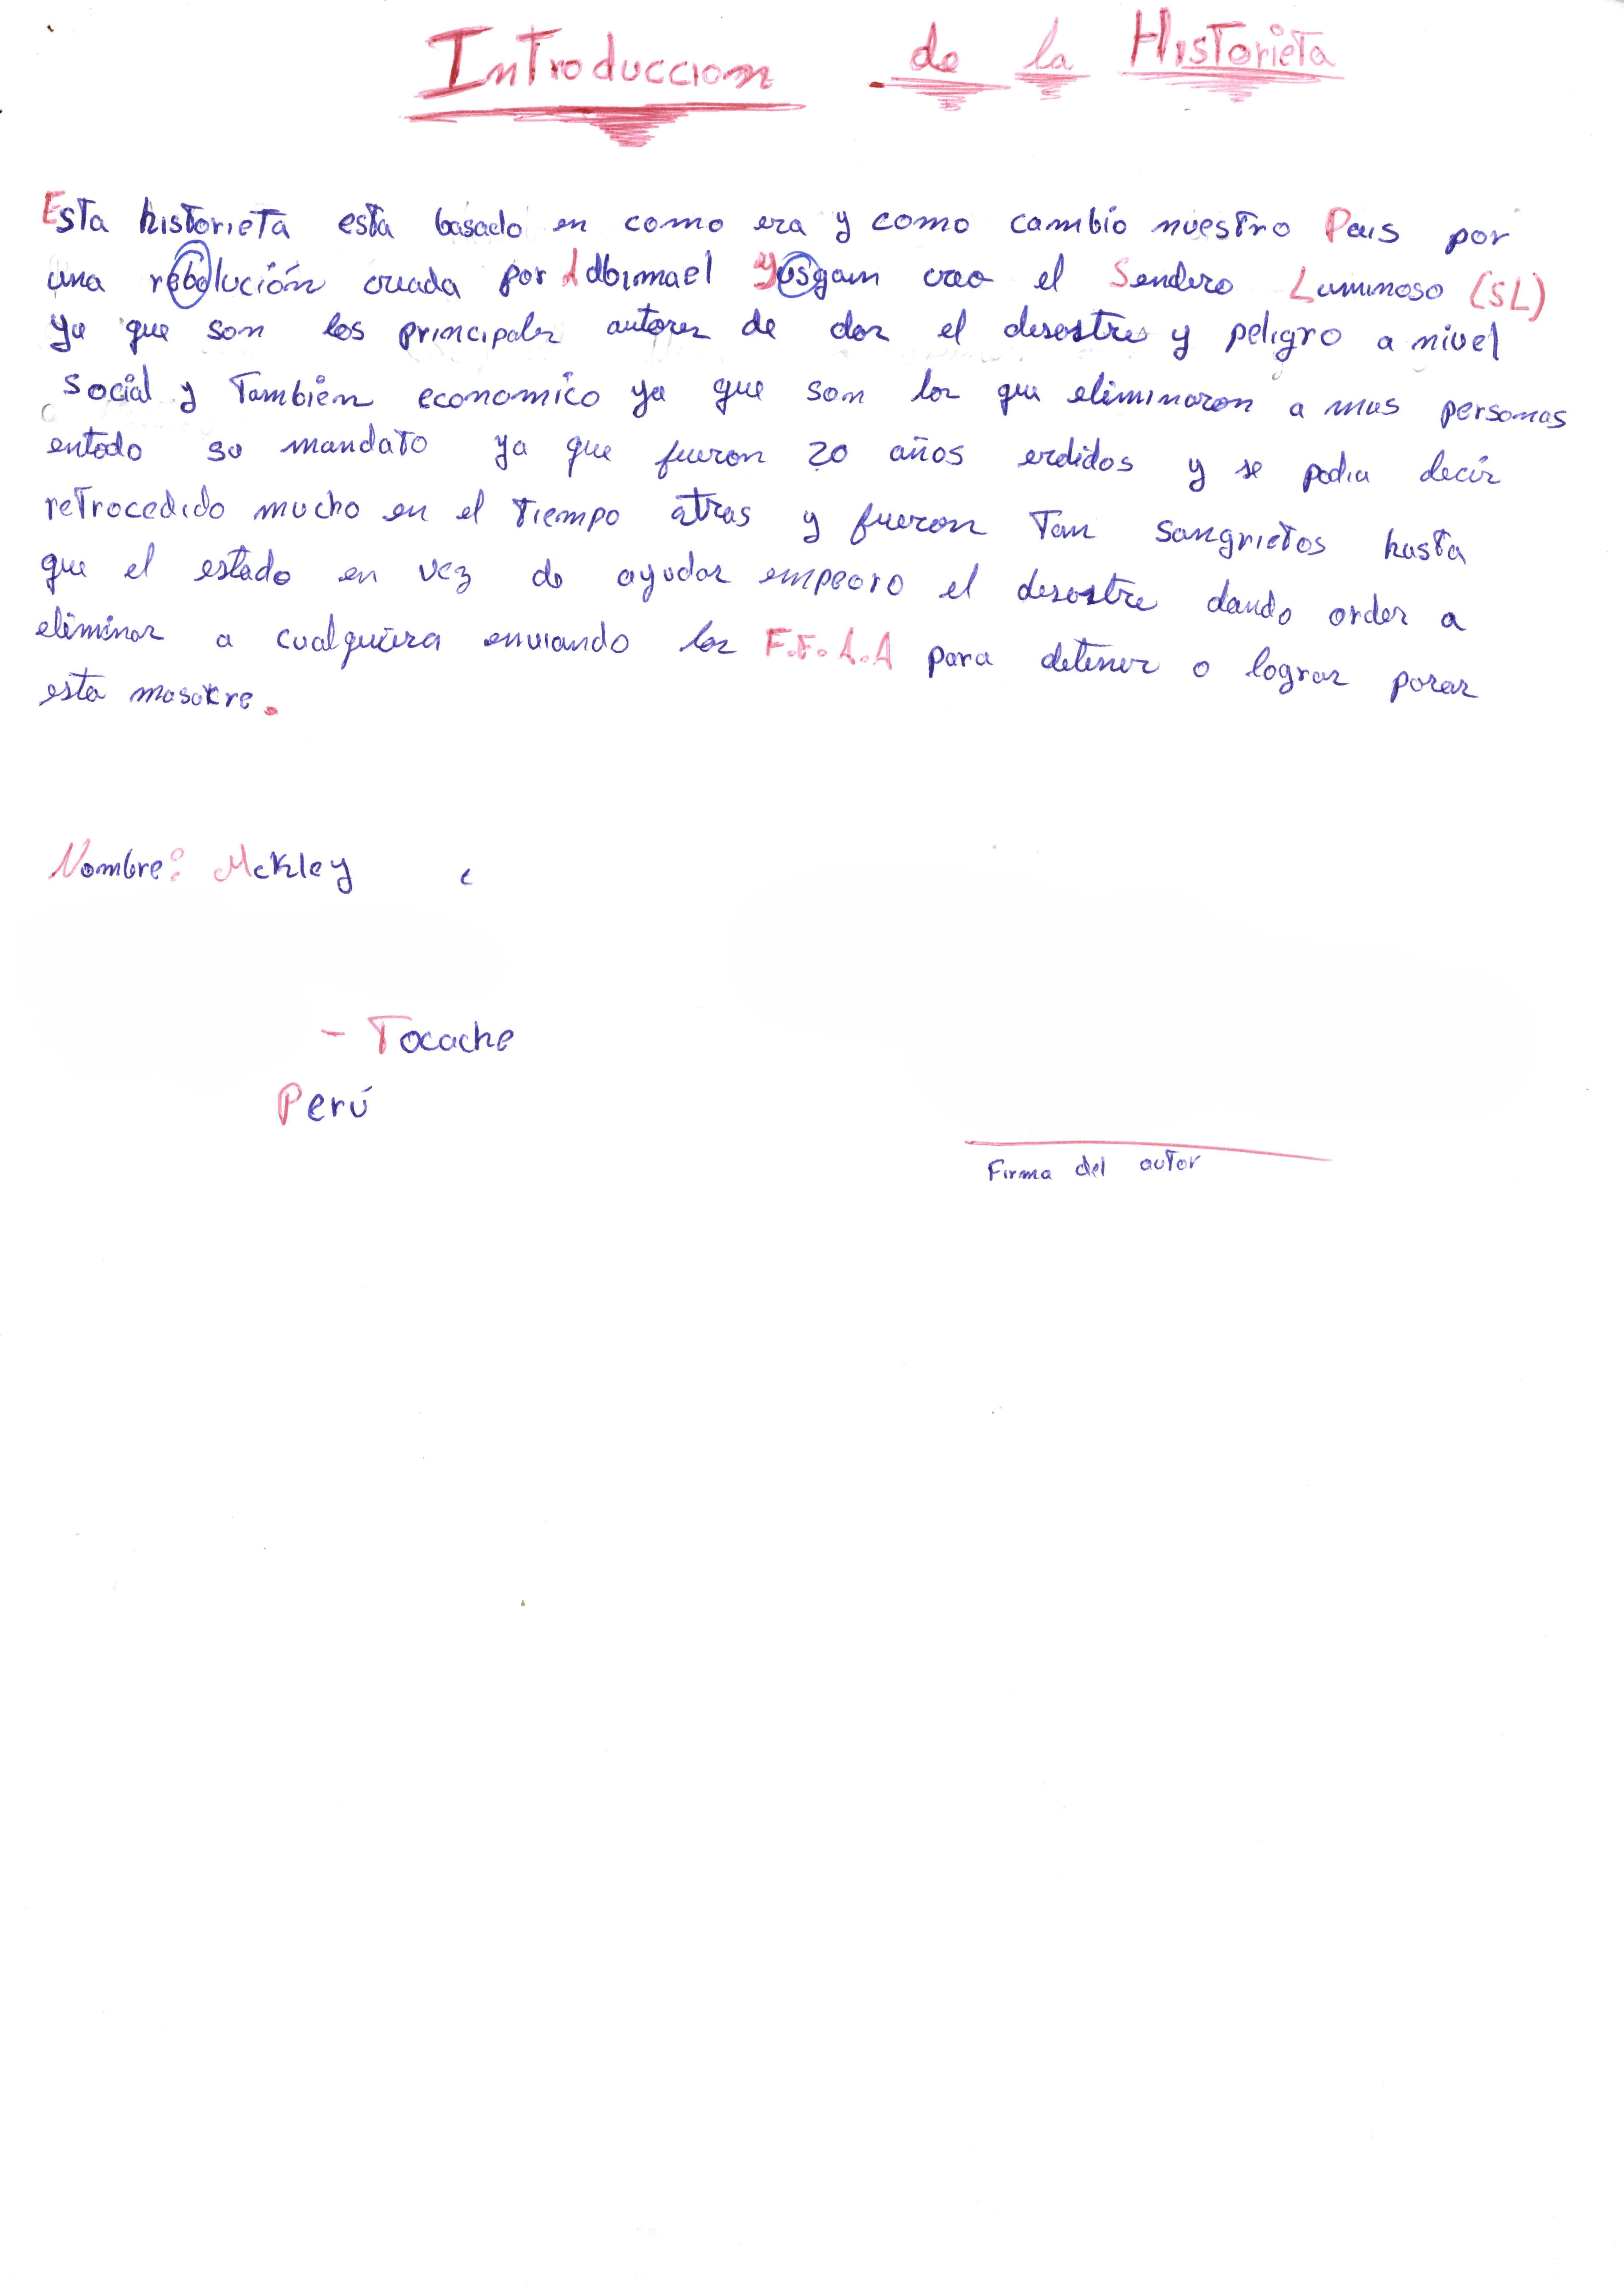 Introduccion de la Historieta
Esta historieta esta basado en como era y como cambio nuestro Pais por
una rebolución creada por Adbimael Yusgam creo el Sendero Luminoso (SL)
ya que son los principales autores de dar el desastre y peligro a nivel
social y Tambien economico ya que son los que eliminaron a mas personas
entodo su mandato ya que fueron 20 años erdidos y se podia decir
retrocedido mucho en el Tiempo atras y fueron Tan sangrietos hasta
que el estado en vez de ayudar empeoro el desastre dando order a
eliminar a cualquiera enviando los F.F.A.A para detener o lograr parar
esta masakre.
Nombre: Mckley
- Tocache
Perú
Firma del autor